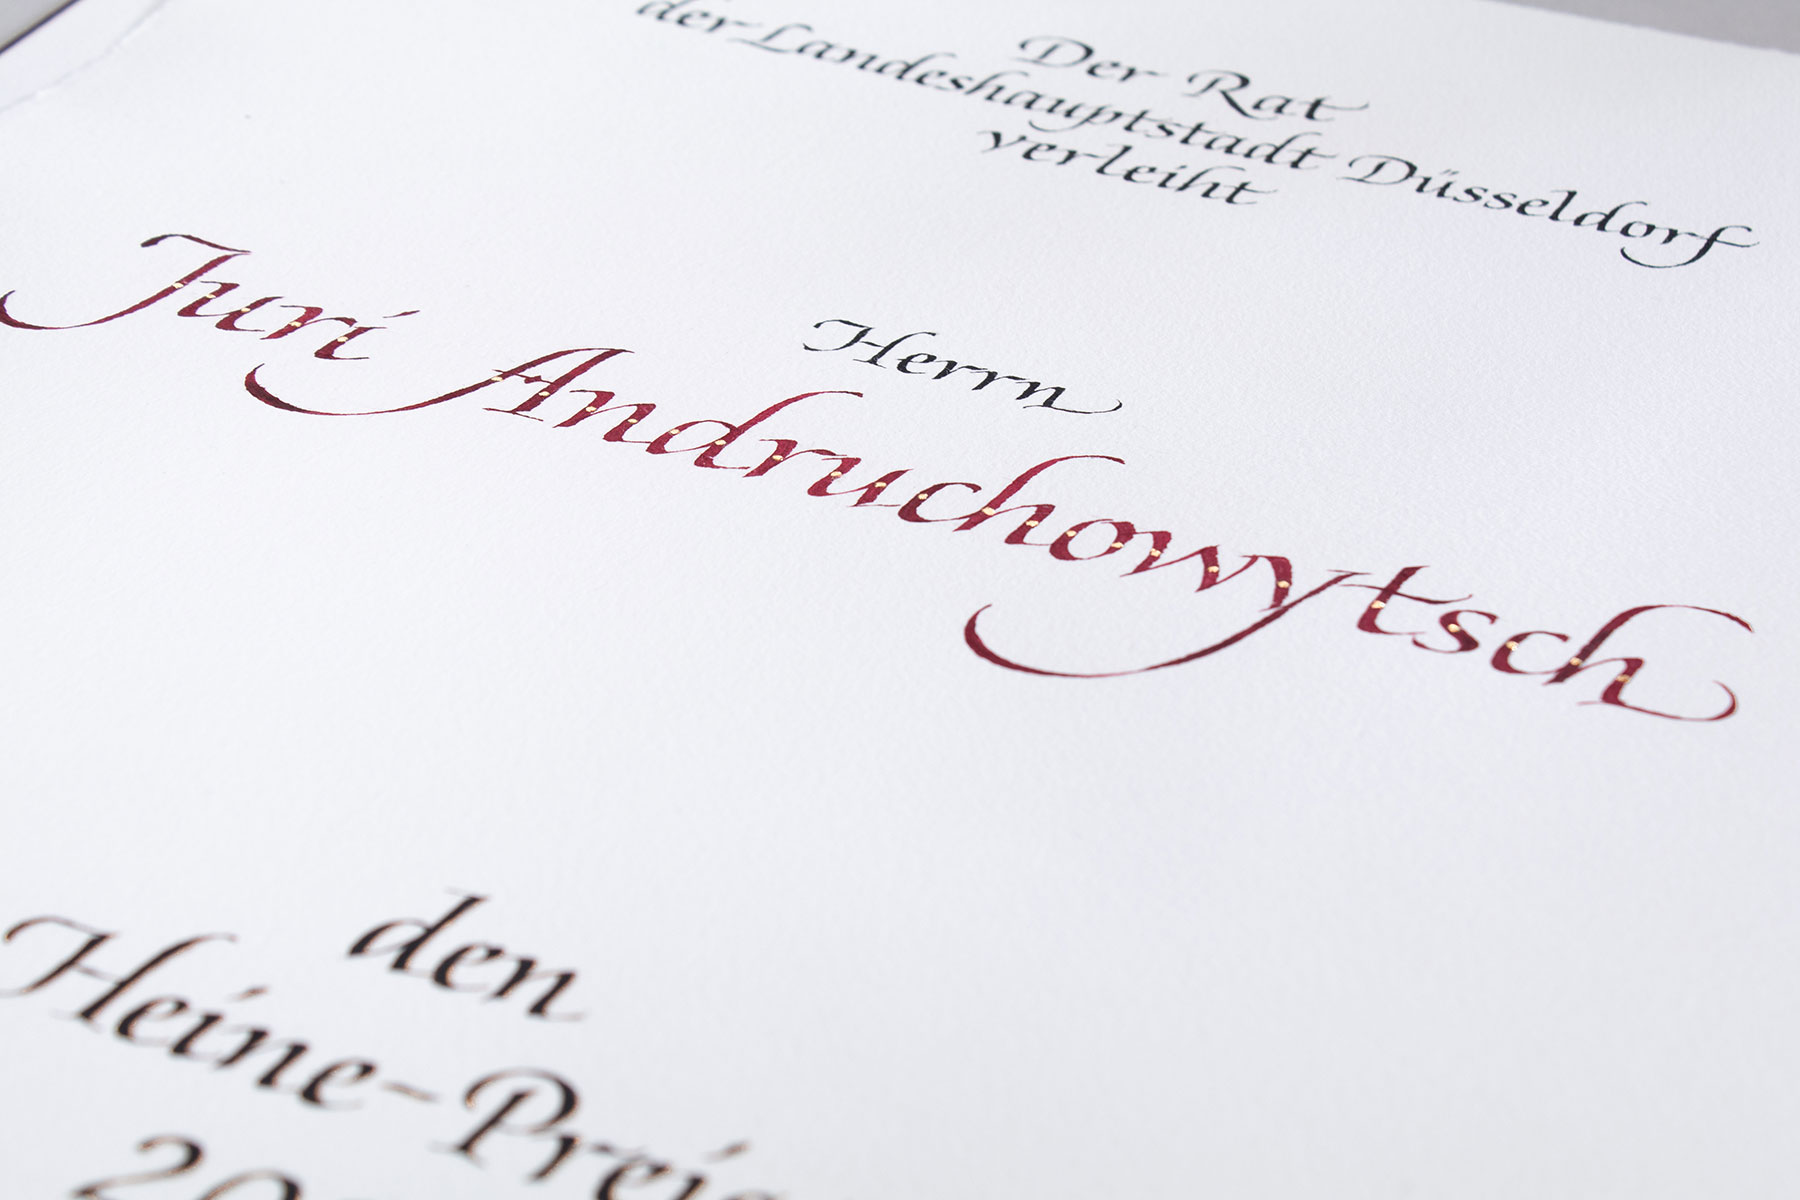 Der Rat
der Landeshauptstadt Düsseldorf
verleiht
Herrn
Juri Andruchowytsch
den
Heine-Preis